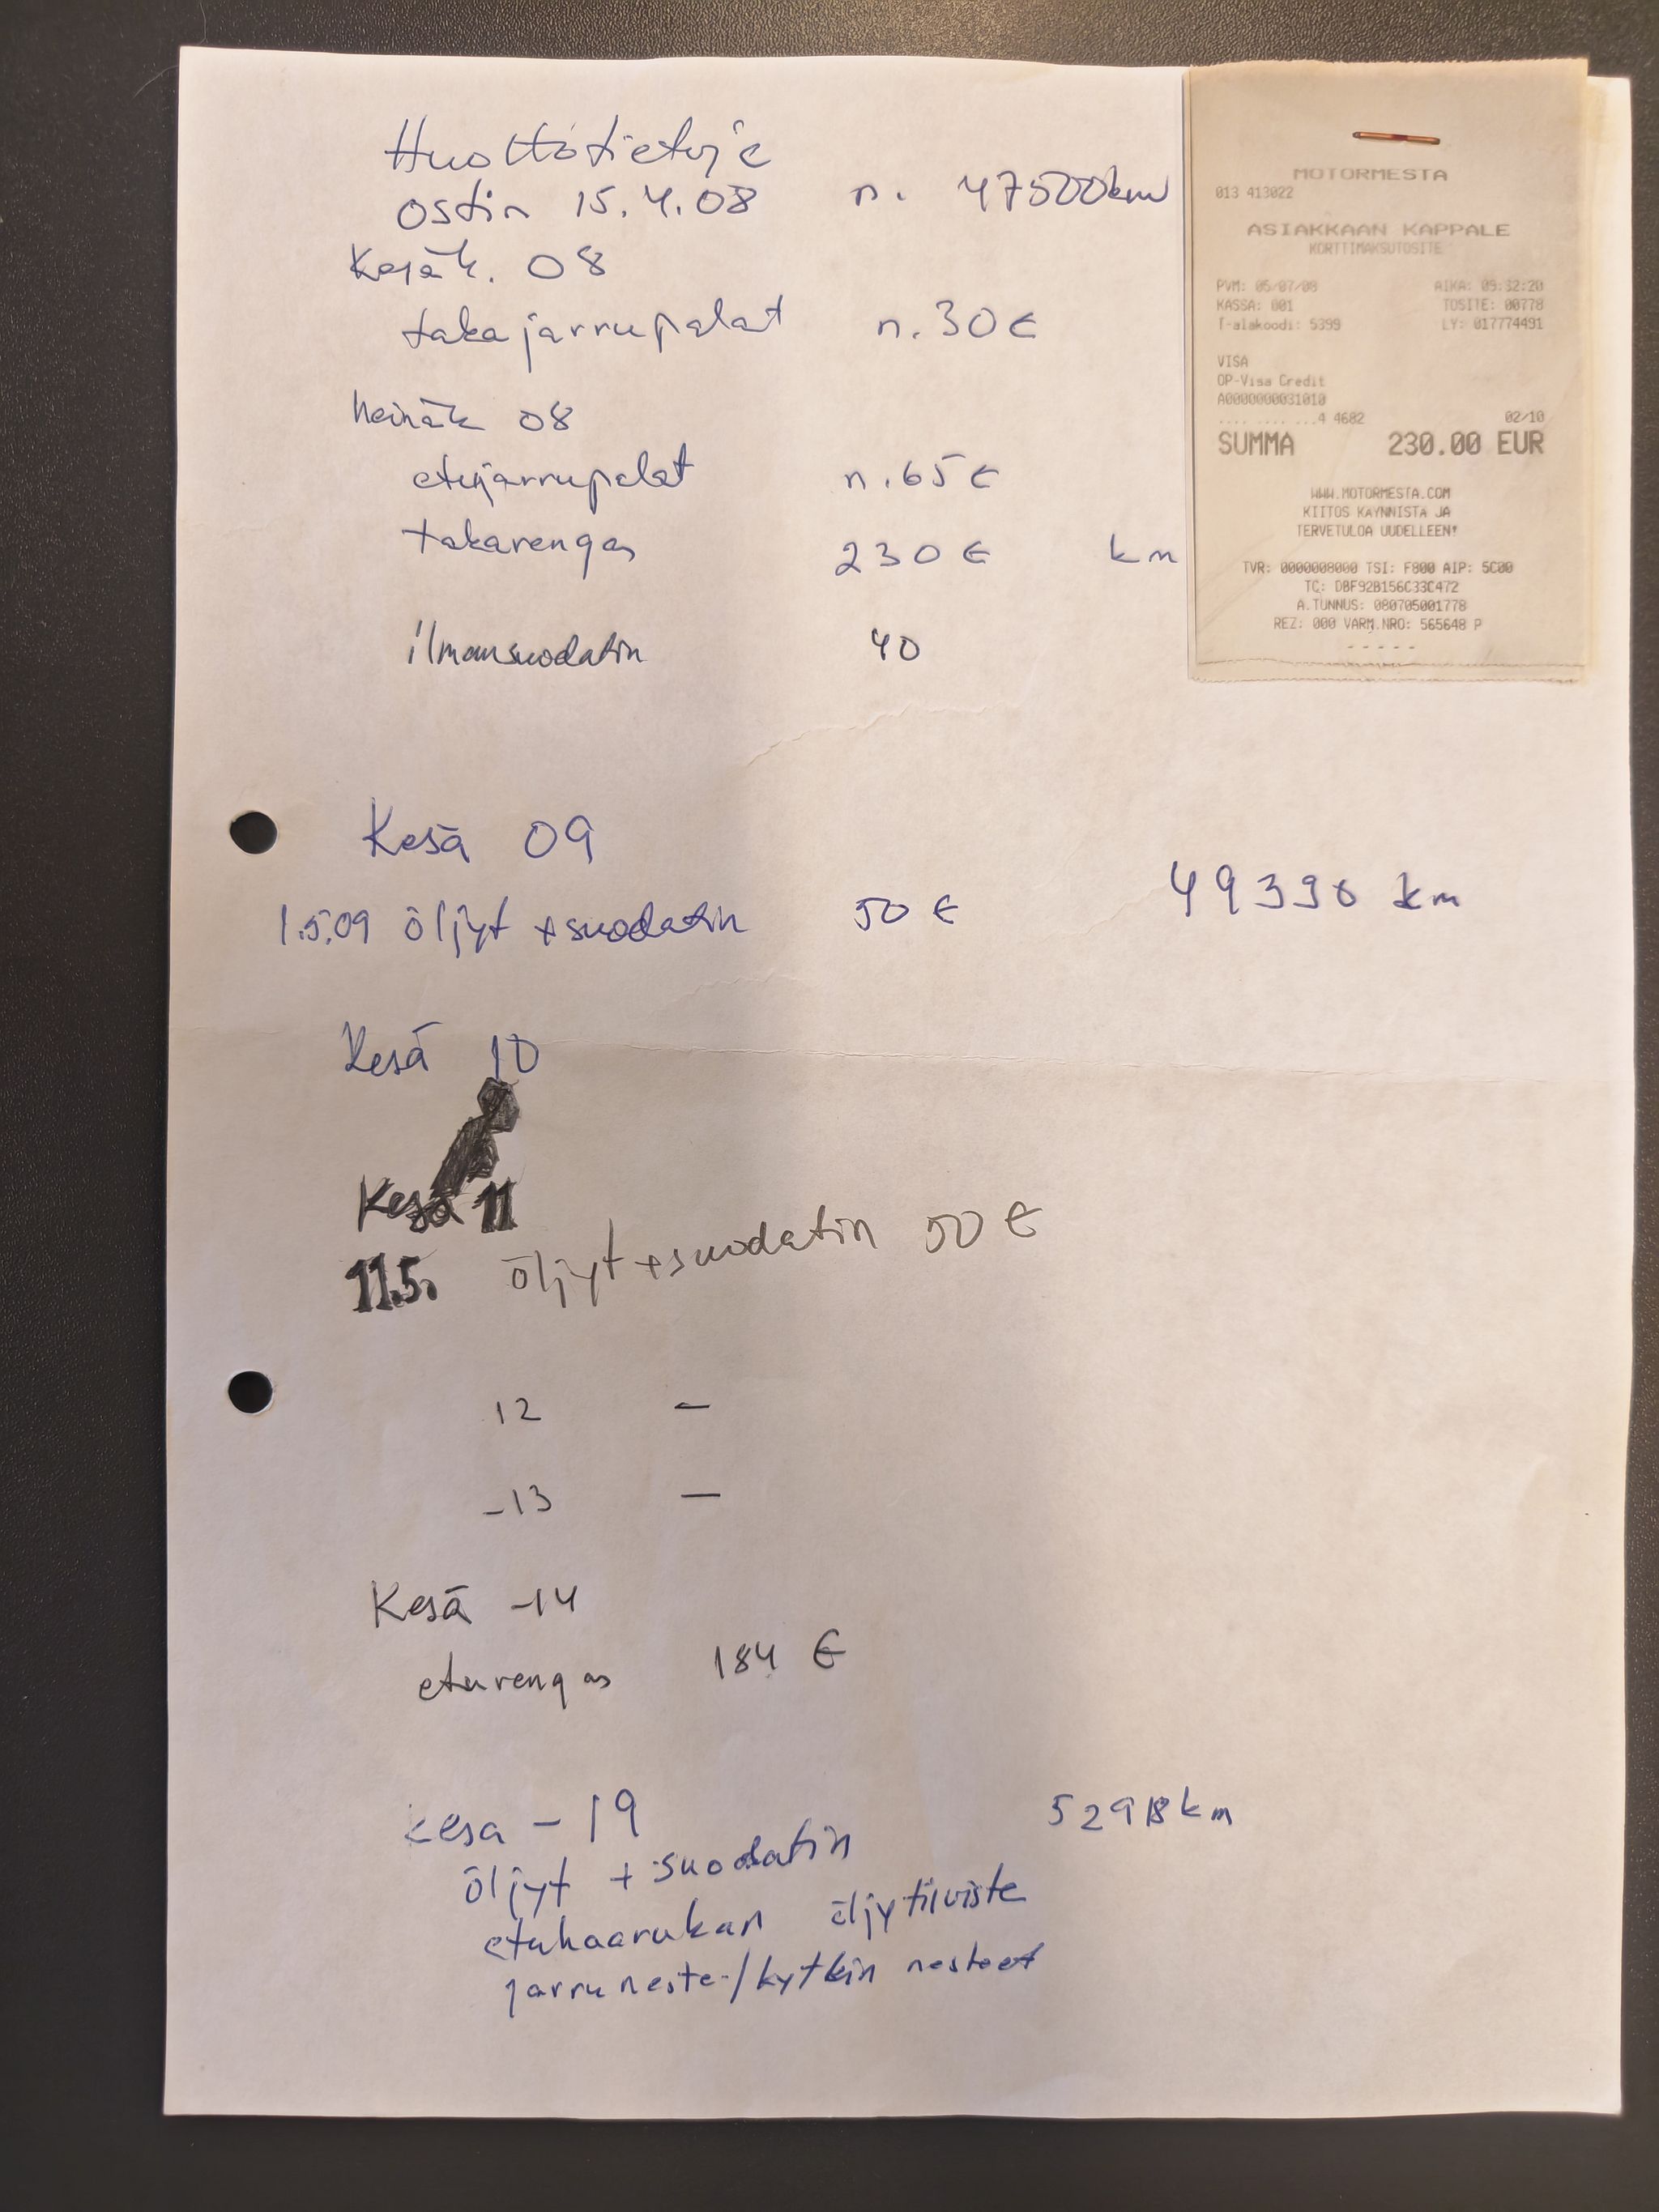 Huoltotietoja
ostin 15.4.08 n. 47500km
Kesäk. 08
takajarrupalat n.30€
heinäk 08
etujarrupalat n.65€
takarengas 230€ km
ilmansuodatin 40
MOTORMESTA
013 413022
ASIAKKAAN KAPPALE
KORTTIMAKSUTOSITE
PVM: 05/07/08 AIKA: 09:32:20
KASSA: 001 TOSITE: 00778
T-alakoodi: 5399 LY: 017774491
VISA
OP-Visa Credit
A0000000031010
.... .... ...4 4682 02/10
SUMMA 230.00 EUR
WWW.MOTORMESTA.COM
KIITOS KÄYNNISTÄ JA
TERVETULOA UUDELLEEN!
TVR: 0000008000 TSI: F800 AIP: 5C00
TC: DBF92B156C33C472
A.TUNNUS: 080705001778
REZ: 000 VARM.NRO: 565648 P
- - - - -
Kesä 09
1.5.09 öljyt +suodatin 50 € km
Kesä 10
Kesä 11
11.5. öljyt +suodatin 50 €
12 –
-13 –
Kesä -14
eturengas 184 €
kesa - 19 km
öljyt + suodatin
etuhaarukan öljytiiviste
jarruneste-/kytkin nesteet